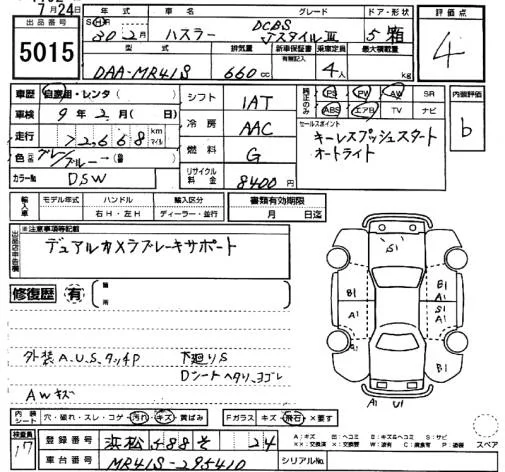 7月24日
出品番号
5015
年式 車名 グレード ドア・形状
30年2月 ハスラー DCBS JスタイルⅢ 5 箱
型式 排気量 新車保証書 有無記入 乗車定員 最大積載量
DAA-MR41S 660cc 4人 kg
評価点
4
車歴 自家用・レンタ( )
車検 9年2月( 日)
走行 72,668 km マイル
カラーNo DSW
シフト IAT
冷房 AAC
燃料 G
リサイクル料金 8400円
PS PW AW SR
ABS エアB TV ナビ
セールスポイント
キーレスプッシュスタート
オートライト
内装評価
b
輸入車 モデル年式 ハンドル 輸入区分 書類有効期限
右H・左H ディーラー・並行 月 日迄
出品店申告欄
※注意事項等記載
デュアルカメラブレーキサポート
修復歴 有 箇所
外装 A.U.S.タッチP 下廻りS
Dシートヘタリ、ヨゴレ
AWキズ
S1
B1 B1
A1
A1 S1
A1
A1 U1
内装シート 穴・破れ・スレ・コゲ・汚れ・キズ・黄ばみ Fガラス キズ・飛石・×要す
スペア
検査員 17
登録番号 浜松 588 そ 24
車台番号 MR41S-295410 シリアルNo.